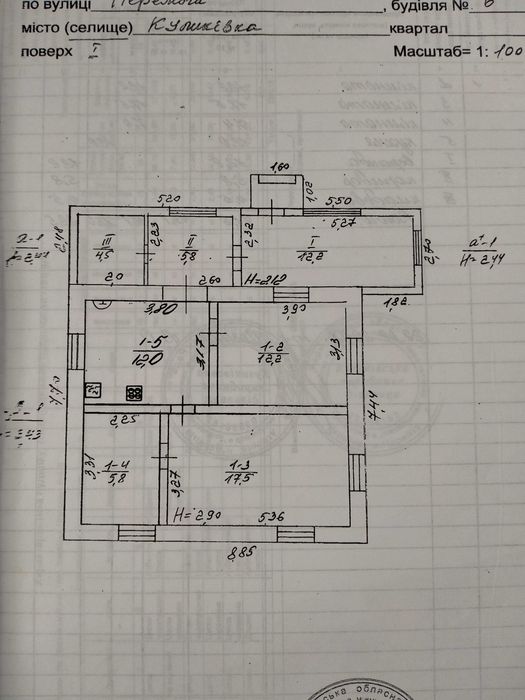 по вулиці Перемоги, будівля № 6
місто (селище) Куликівка квартал
поверх I Масштаб= 1: 100
1,60
1,02
5,20 5,50
5,27
2,48 III 4,5 2,23 II 5,8 2,32 I 12,2 2,70 а¹-1
H=2,44
2,0 2,60 H=2,12
1,82
3,80 3,90
1-5 12,0 3,17 1-2 12,2 3,13
7,70 7,44
2,25
3,31 1-4 5,8 3,27 1-3 17,5
H=2,90 5,36
8,85
ська обласн